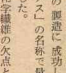 の製造に成功し
ス」の名称で験
た。
化学繊維の欠点と